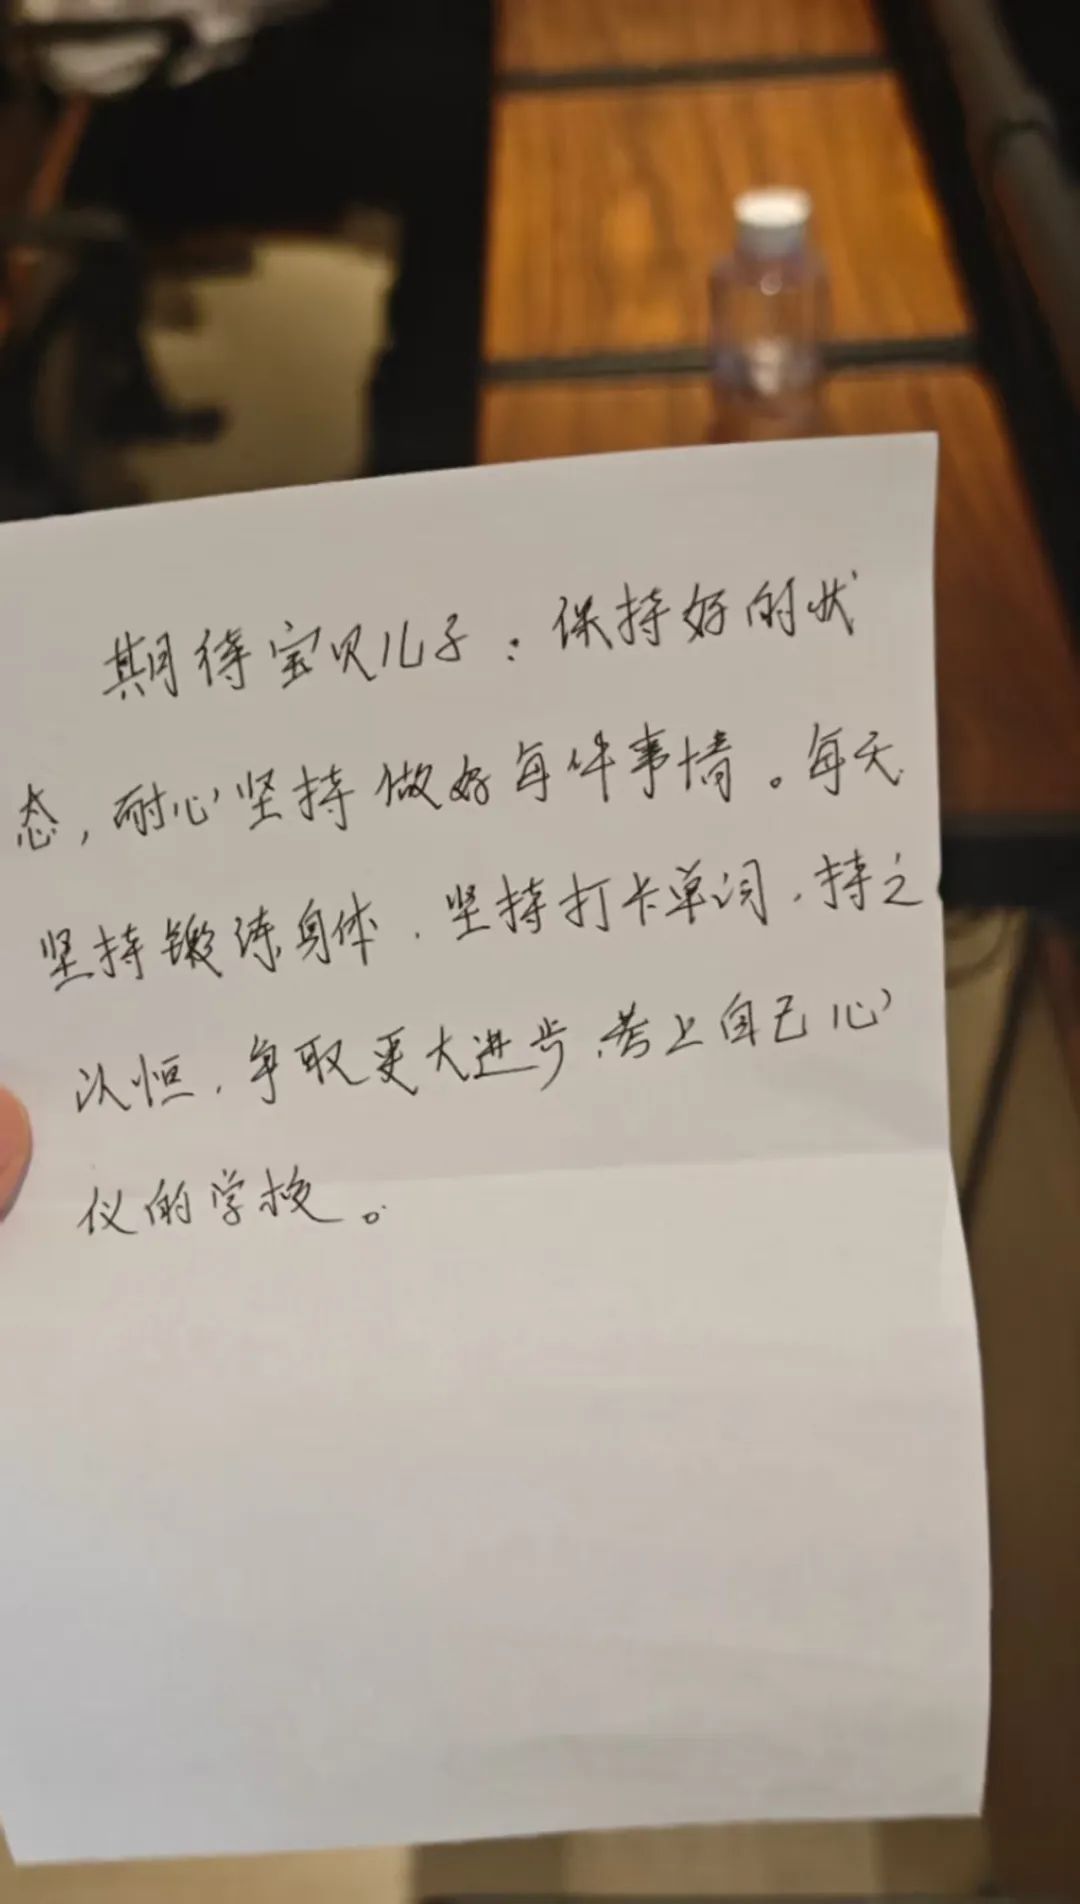 期待宝贝儿子：保持好的状
态，耐心坚持做好每件事情。每天
坚持锻练身体、坚持打卡单词，持之
以恒，争取更大进步，考上自己心
仪的学校。